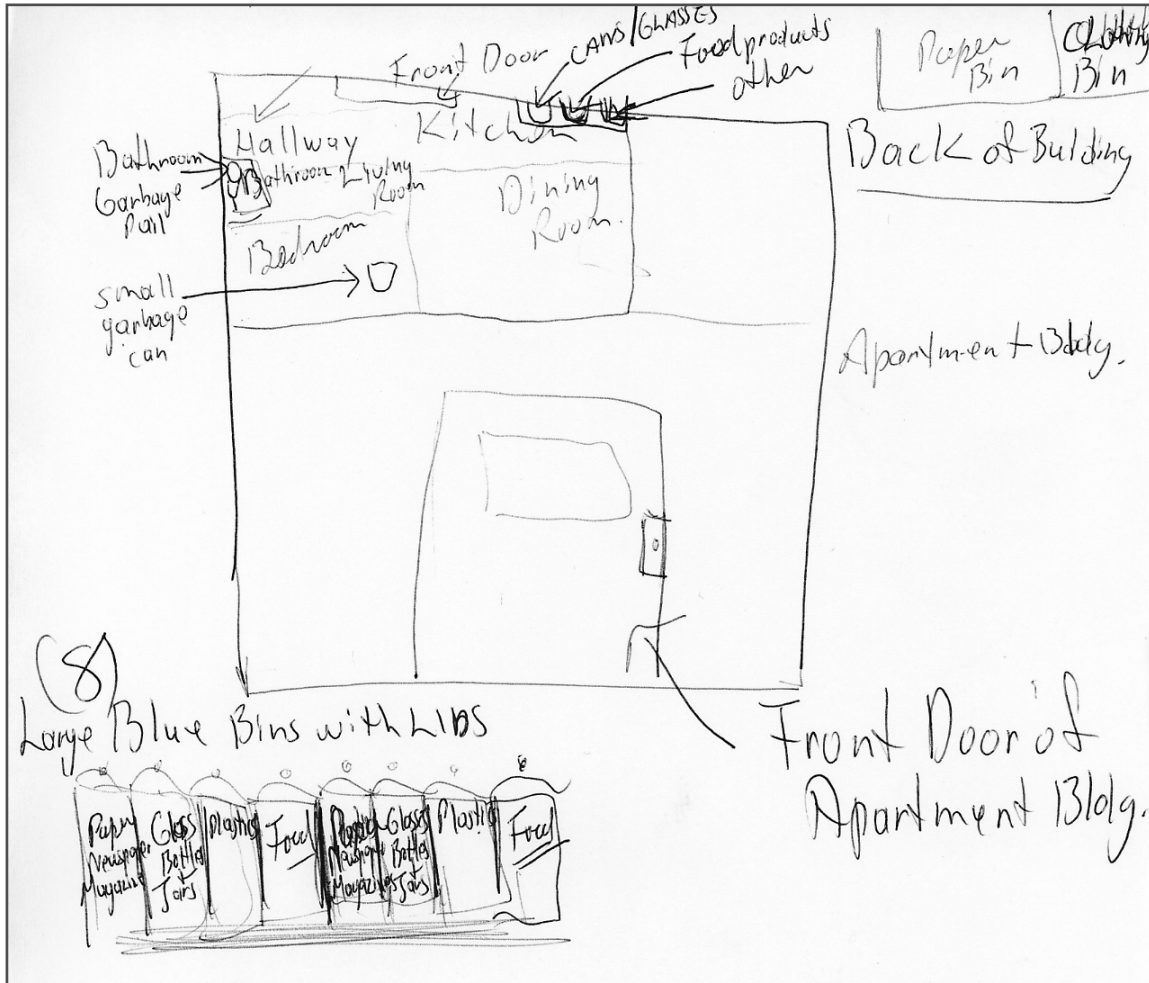 Front Door
CANS/GLASSES
Food products
other
Paper
Bin
Clothing
Bin
Back of Bulding
Hallway
Kitchen
Bathroom
Garbage
Pail
Bathroom
Living
Room
Dining
Room.
Bedroom
small
garbage
can
Apartment Bldg.
(8)
Large Blue Bins with LIDS
Front Door of
Apartment Bldg.
Paper
Newspaper
Magazine
Glass
Bottles
Jars
Plastic
Food
Newspaper
Magazines
Glasses
Bottles
Jars
Plastic
Food